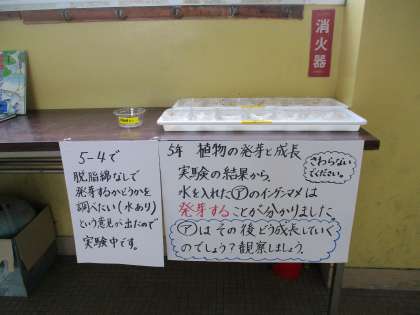 消火器
5-4で
脱脂綿なしで
発芽するかどうかを
調べたい(水あり)
という意見が出たので
実験中です。
5年 植物の発芽と成長
さわらない
でください。
実験の結果から、
水を入れた㋐のインゲンマメは
発芽することが分かりました。
㋐はその後どう成長していく
のでしょう?観察しましょう。